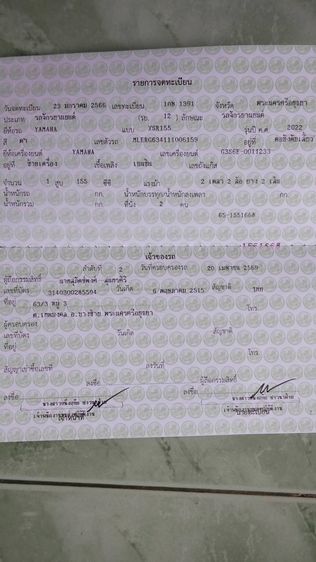 รายการจดทะเบียน
วันจดทะเบียน 23 มกราคม 2566 เลขทะเบียน 1กท 1391 จังหวัด พระนครศรีอยุธยา
ประเภท รถจักรยานยนต์ (รย. 12 ) ลักษณะ รถจักรยานยนต์
ยี่ห้อรถ YAMAHA แบบ รุ่นปี ค.ศ 2022
สี เทา เลขตัวรถ อยู่ที่
ยี่ห้อเครื่องยนต์ YAMAHA เลขเครื่องยนต์ G3S6E-0011233
อยู่ที่ เชื้อเพลิง เบนซิน เลขถังแก๊ส
จำนวน 1 สูบ 155 ซีซี แรงม้า 2 เพลา 2 ล้อ ยาง 2 เส้น
น้ำหนักรถ กก. น้ำหนักบรรทุก/น้ำหนักลงเพลา กก.
น้ำหนักรวม กก. ที่นั่ง 2 คน
65-1551668
เจ้าของรถ
ลำดับที่ 2 วันที่ครอบครองรถ 20 เมษายน 2569
ผู้ถือกรรมสิทธิ์
เลขที่บัตร 3140300285594 วันเกิด 6 พฤษภาคม 2515 สัญชาติ ไทย
ที่อยู่ 63/3 หมู่ 3 โทร.
อ.บางซ้าย พระนครศรีอยุธยา
ผู้ครอบครอง
เลขที่บัตร วันเกิด สัญชาติ
ที่อยู่ โทร.
สัญญาเช่าซื้อเลขที่ ลงวันที่
ลงชื่อ ผู้ถือกรรมสิทธิ์
ลงชื่อ ลงชื่อ
เจ้าหน้าที่ นายทะเบียน